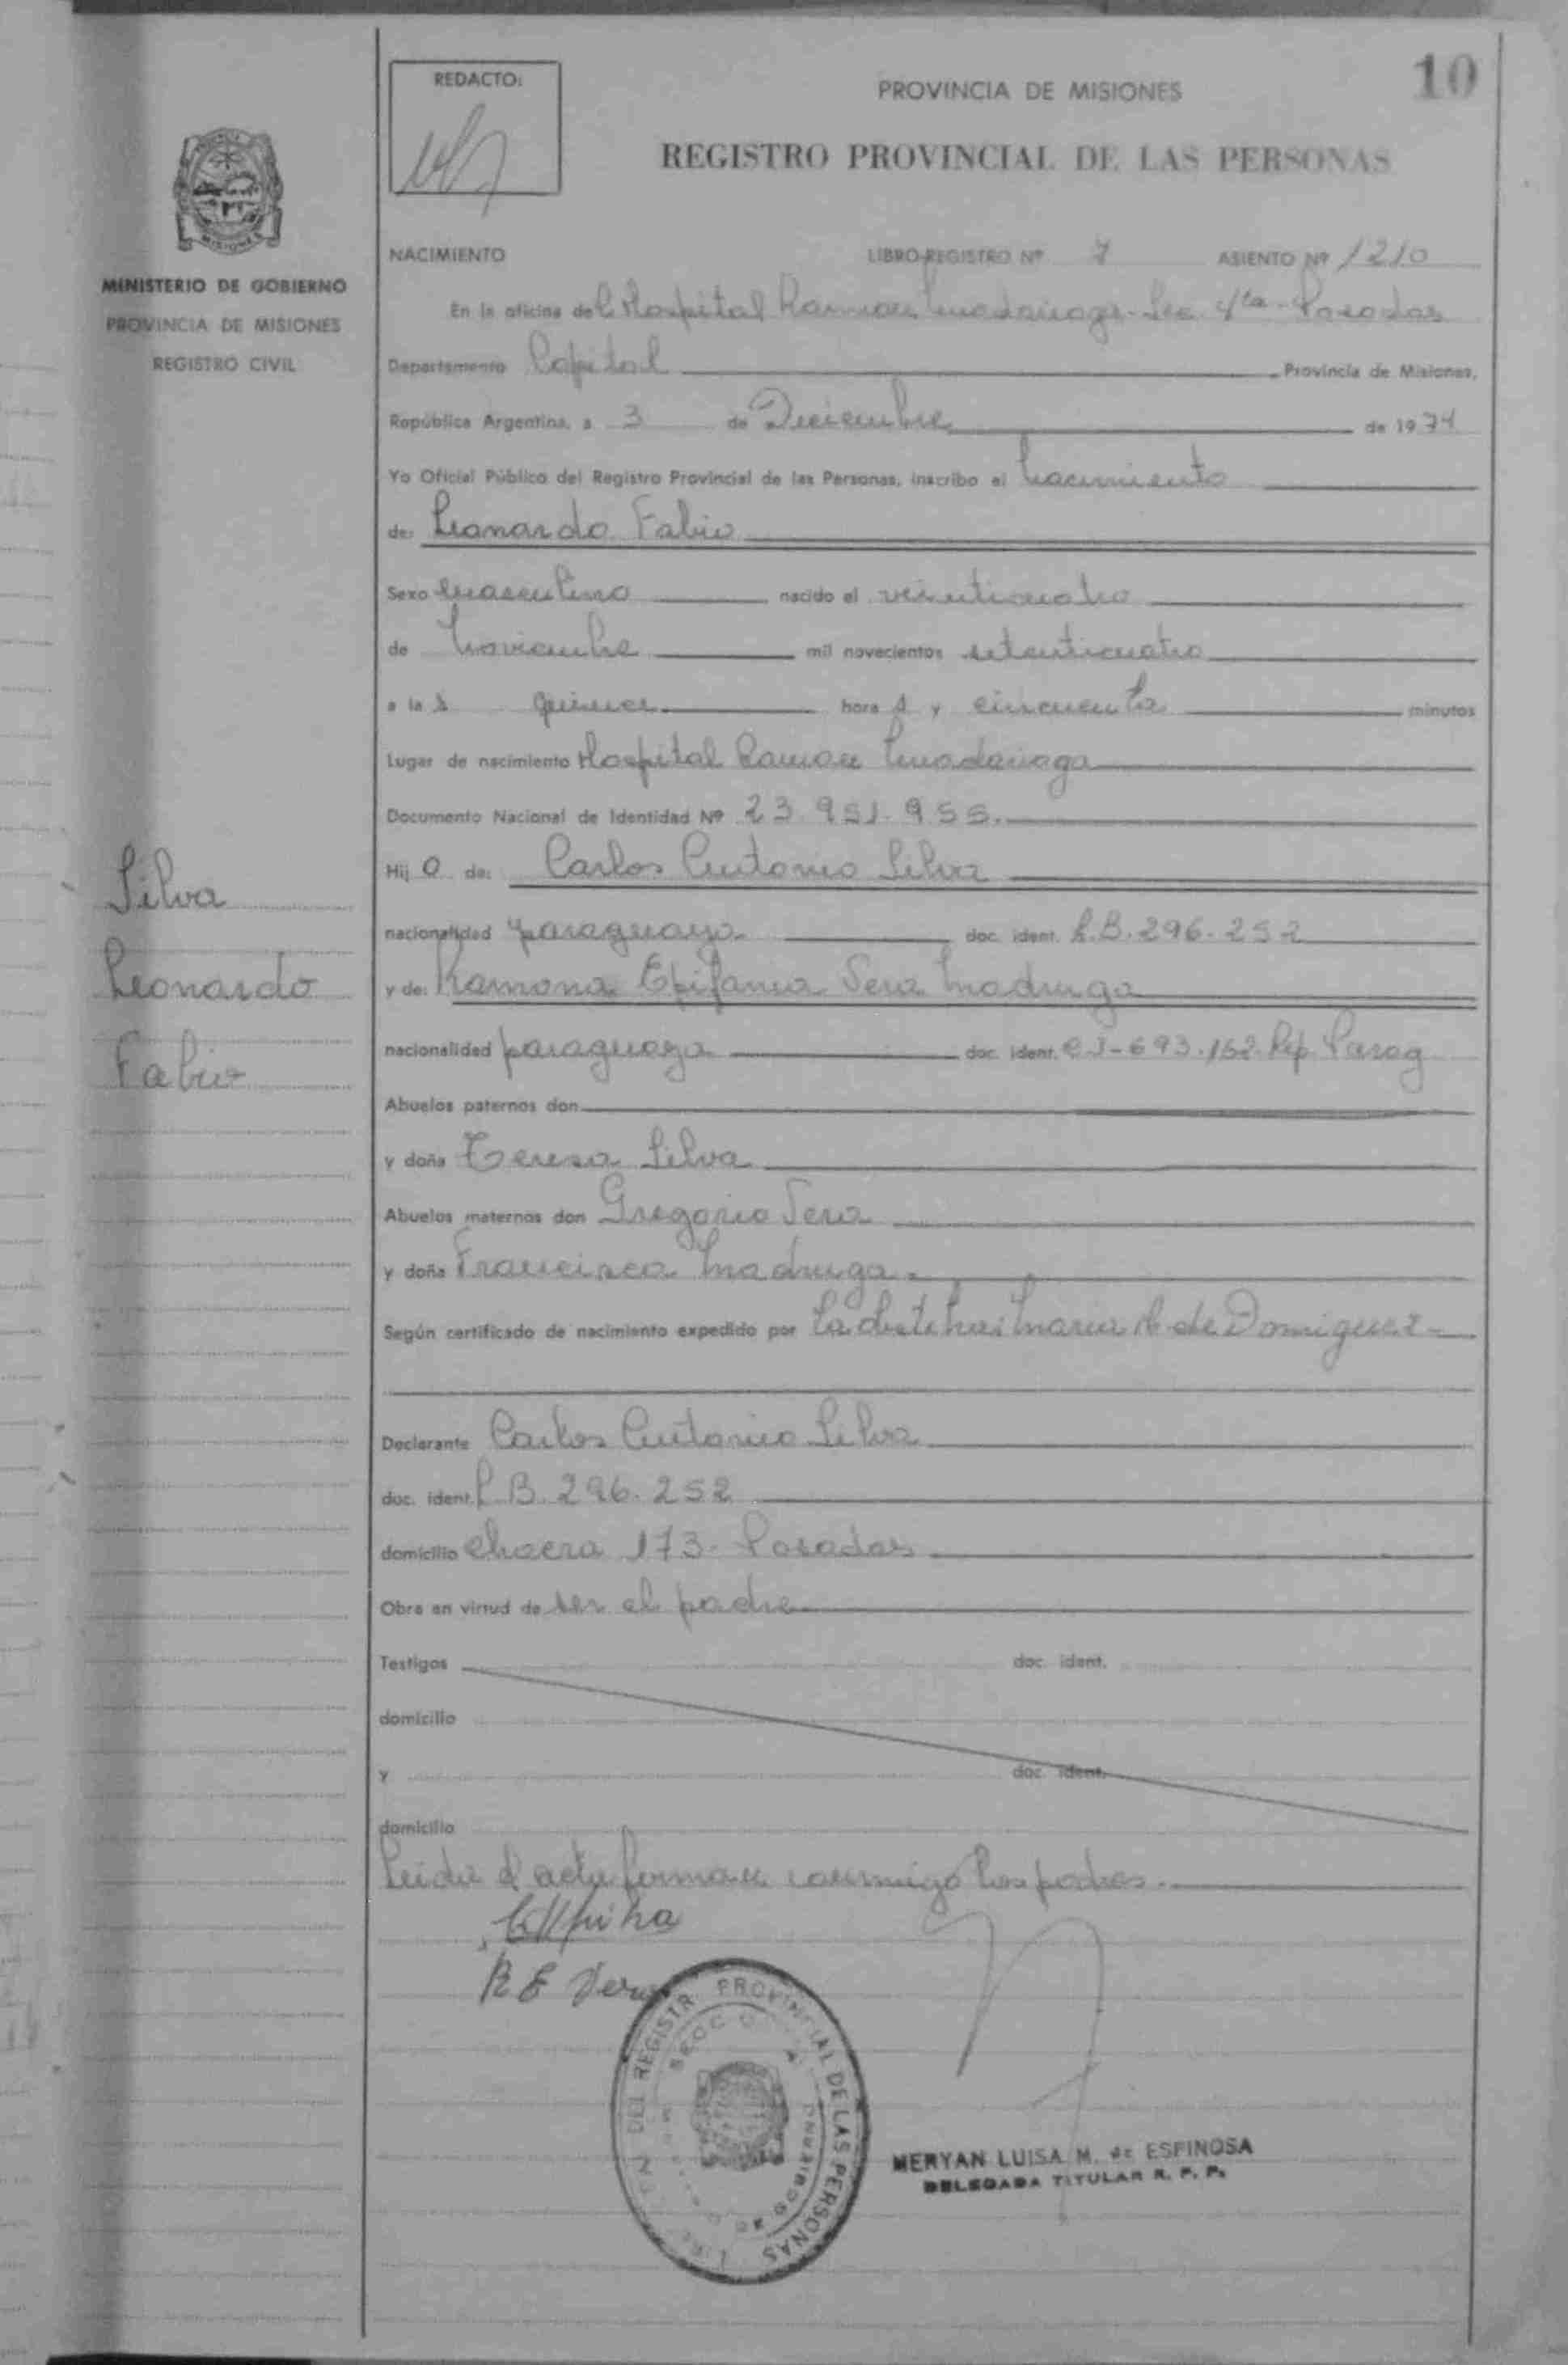 10
REDACTO:
PROVINCIA DE MISIONES
REGISTRO PROVINCIAL DE LAS PERSONAS
MINISTERIO DE GOBIERNO
PROVINCIA DE MISIONES
REGISTRO CIVIL
NACIMIENTO LIBRO-REGISTRO Nº 7 ASIENTO Nº 1210
En la oficina del Hospital Ramon Madariaga - Sec. 4ta - Posadas
Departamento Capital Provincia de Misiones,
República Argentina, a 3 de Diciembre de 1974
Yo Oficial Público del Registro Provincial de las Personas, inscribo el Nacimiento
de: Leonardo Fabio
Sexo masculino nacido el veinticuatro
de Noviembre mil novecientos setenticuatro
a las quince horas y cincuenta minutos
Lugar de nacimiento Hospital Ramon Madariaga
Documento Nacional de Identidad Nº 23.951.955.
Hijo de: Carlos Antonio Silva
nacionalidad paraguayo doc. ident. 296.252
y de: Ramona Epifania Vera Madruga
nacionalidad paraguaya doc. ident. 693.152 Rep Parag
Abuelos paternos don
y doña Teresa Silva
Abuelos maternos don Gregorio Vera
y doña Francisca Madruga.
Según certificado de nacimiento expedido por La Maria de Dominguez
Declarante Carlos Antonio Silva
doc. ident. 296.252
domicilio chacra 173 - Posadas
Obra en virtud de ser el padre
Testigos doc. ident.
domicilio
y doc. ident.
domicilio
Leida el acta firman conmigo los padres.
R E Vera
Silva
Leonardo
Fabio
DEL REGISTR. PROVINCIAL DE LAS PERSONAS
MERYAN LUISA M. de ESPINOSA
DELEGADA TITULAR R. P. P.